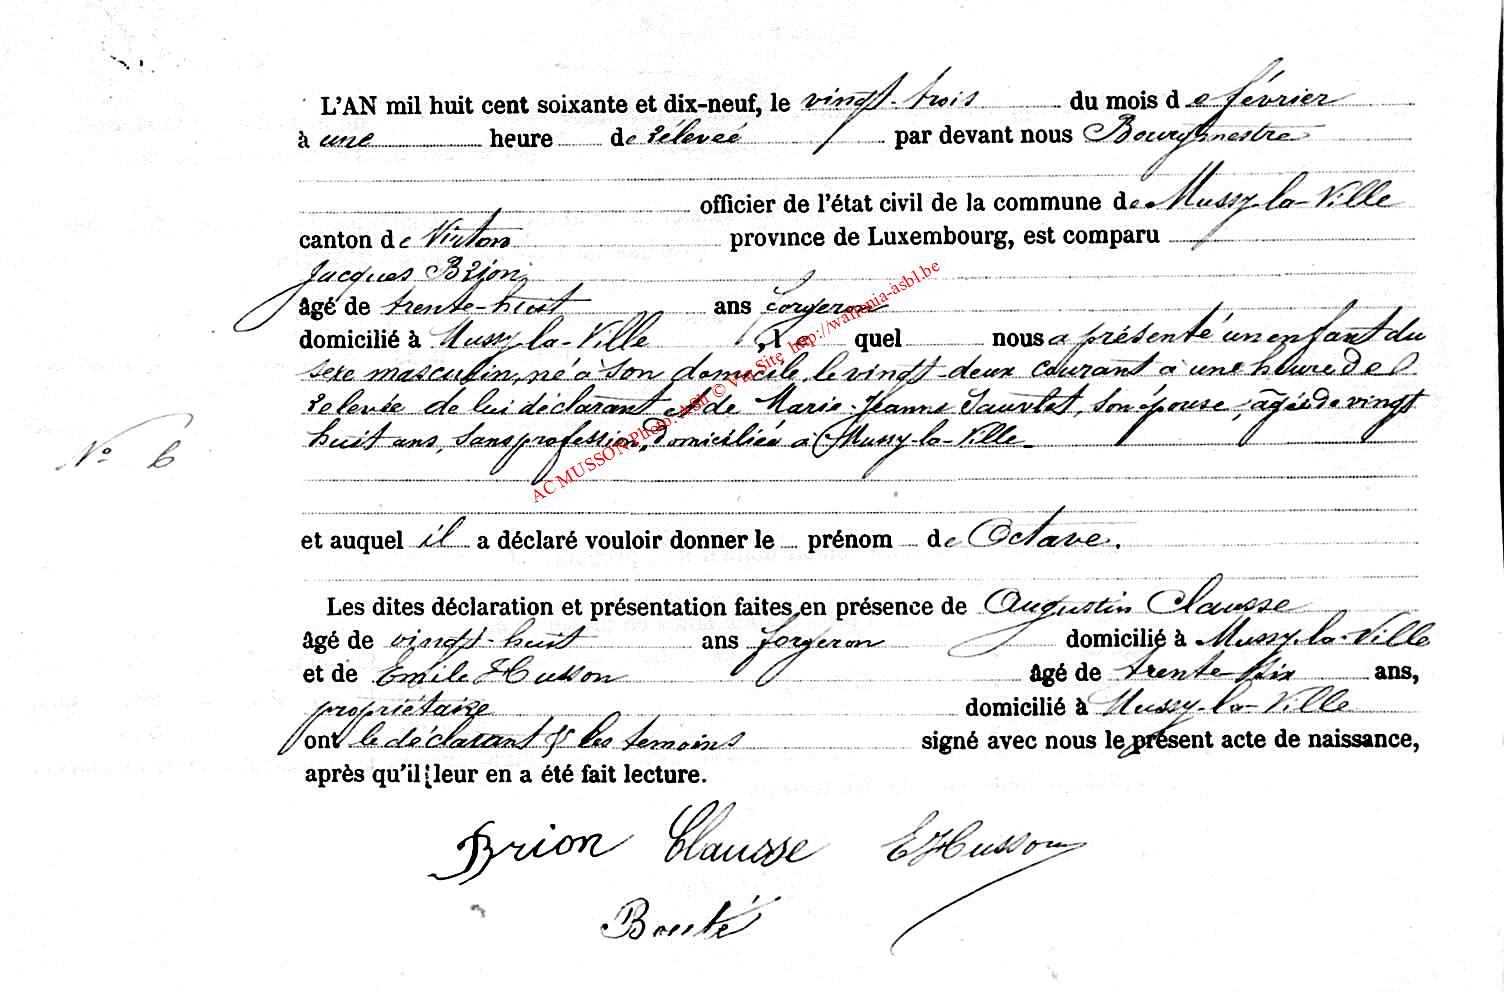 L'AN mil huit cent soixante et dix-neuf, le vingt-trois du mois de février
à une heure de relevée par devant nous Bourgmestre
officier de l'état civil de la commune de Mussy-la-Ville
canton de Virton province de Luxembourg, est comparu
Jacques Brion
âgé de trente-huit ans forgeron
domicilié à Mussy-la-Ville, le quel nous a présenté un enfant du
sexe masculin, né à son domicile, le vingt-deux courant à une heure de
relevée de lui déclarant et de Marie-Jeanne Sauvlet, son épouse, âgée de vingt
huit ans, sans profession, domiciliée à Mussy-la-Ville
N° 6
AC MUSSON Photo: ASh © Via Site http://wallonia-asbl.be
et auquel il a déclaré vouloir donner le prénom de Octave.
Les dites déclaration et présentation faites en présence de Augustin Clausse
âgé de vingt-huit ans forgeron domicilié à Mussy-la-Ville
et de Emile Husson âgé de trente-six ans,
propriétaire domicilié à Mussy-la-Ville
ont le déclarant & les temoins signé avec nous le présent acte de naissance,
après qu'il leur en a été fait lecture.
Brion Clausse EHusson
Bouté